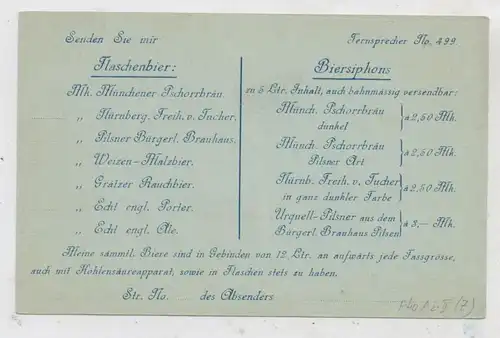 Senden Sie mir
Fernsprecher No. 499.
Flaschenbier:
Mk. Münchener Pschorrbräu.
„ Nürnberg. Freih. v. Tucher.
„ Pilsner Bürgerl. Brauhaus.
„ Weizen-Malzbier.
„ Grätzer Rauchbier.
„ Echt engl. Porter.
„ Echt engl. Ale.
Biersiphons
zu 5 Ltr. Inhalt, auch bahnmässig versendbar:
Münch. Pschorrbräu
dunkel } à 2,50 Mk.
Münch. Pschorrbräu
Pilsner Art } à 2,50 Mk.
Nürnb. Freih. v. Tucher
in ganz dunkler Farbe } à 2,50 Mk.
Urquell-Pilsner aus dem
Bürgerl. Brauhaus Pilsen } à 3,— Mk.
Meine sämmtl. Biere sind in Gebinden von 12 Ltr. an aufwärts jede Fassgrösse,
auch mit Kohlensäureapparat, sowie in Flaschen stets zu haben.
Str. No. des Absenders